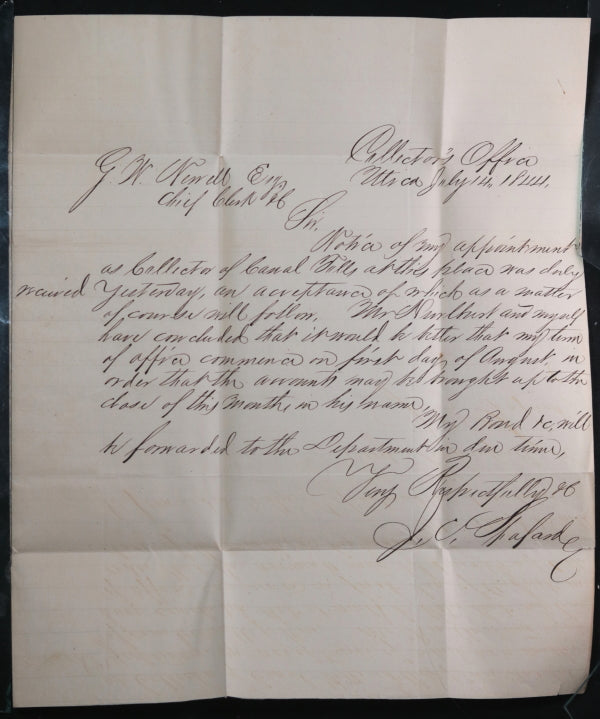 Collector's Office
Utica July 14, 1844,
G. W. Newell Esq
Chief Clerk &c
Sir,
Notice of my appointment
as Collector of Canal Tolls at this place was duly
received Yesterday, an acceptance of which as a matter
of course will follow, Mr Hurlburt and myself
have concluded that it would be better that my term
of office commence on first day of August in
order that the accounts may be brought up to the
close of this Month, in his name,
My Bond &c, will
be forwarded to the Department in due time,
Very Respectfully &c
J. C.